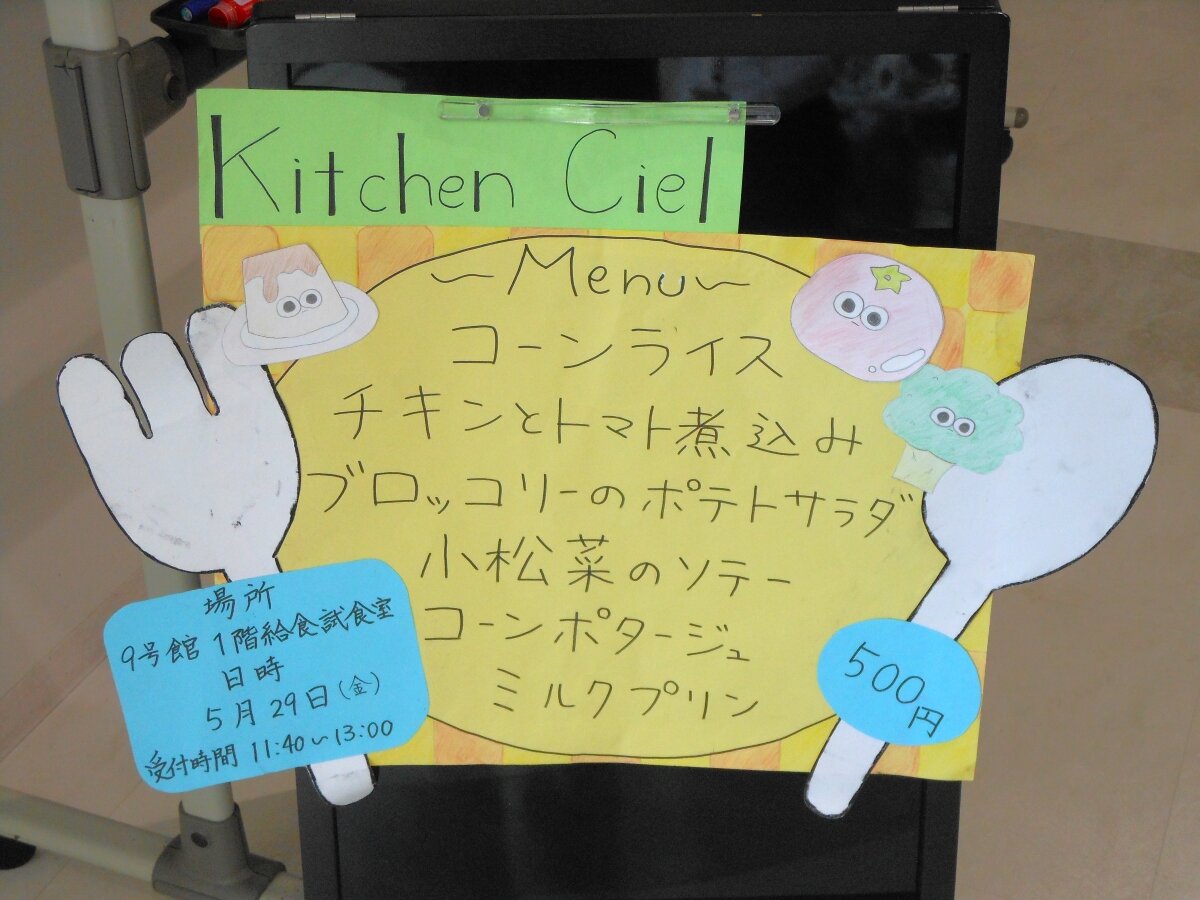 Kitchen Ciel
~Menu~
コーンライス
チキンとトマト煮込み
ブロッコリーのポテトサラダ
小松菜のソテー
コーンポタージュ
ミルクプリン
場所
9号館 1階給食試食室
日時
5月29日(金)
受付時間 11:40~13:00
500円